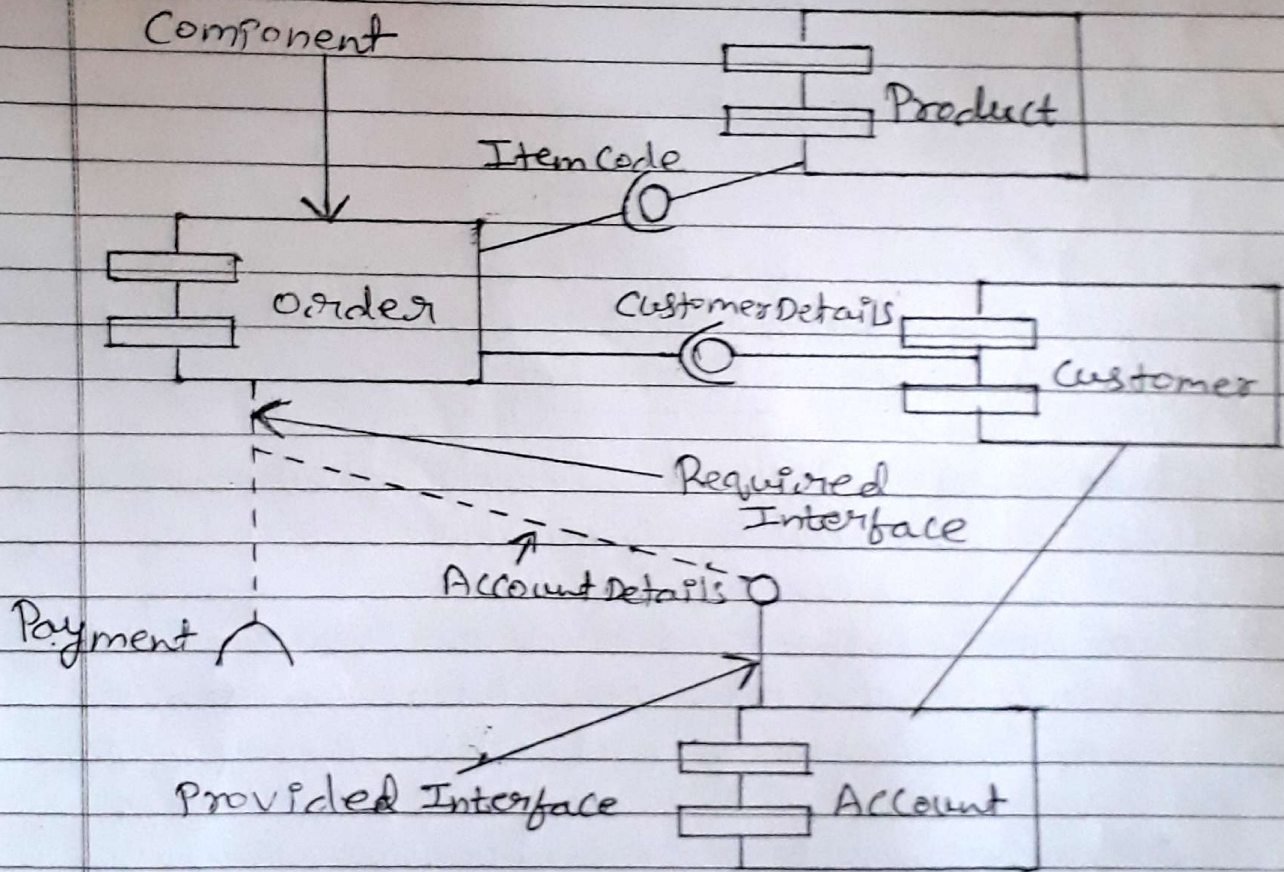 Component
Product
ItemCode
Order
CustomerDetails
Customer
Required
Interface
AccountDetails
Payment
Provided Interface
Account